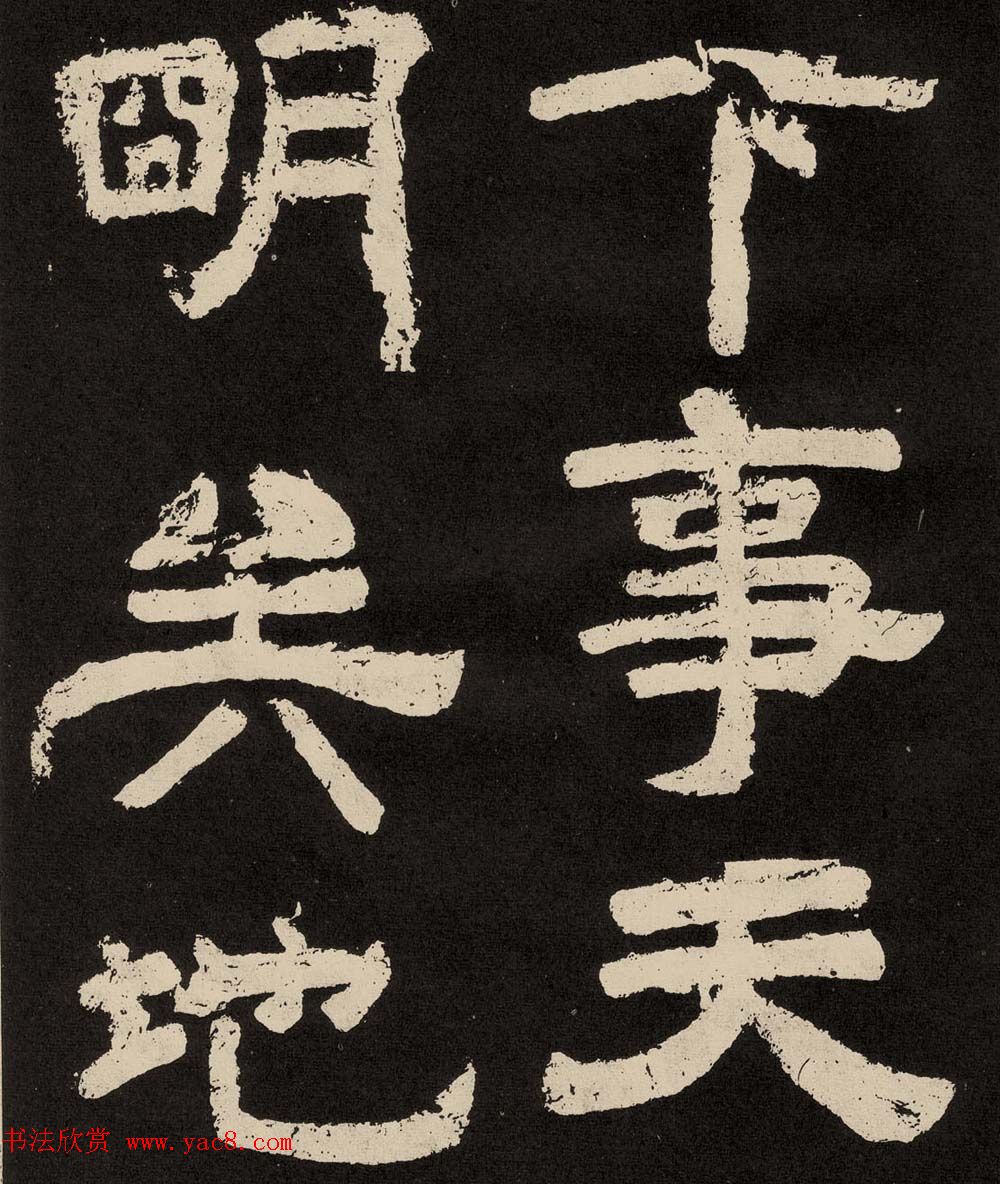 下事天
明矣地
书法欣赏 www.yac8.com